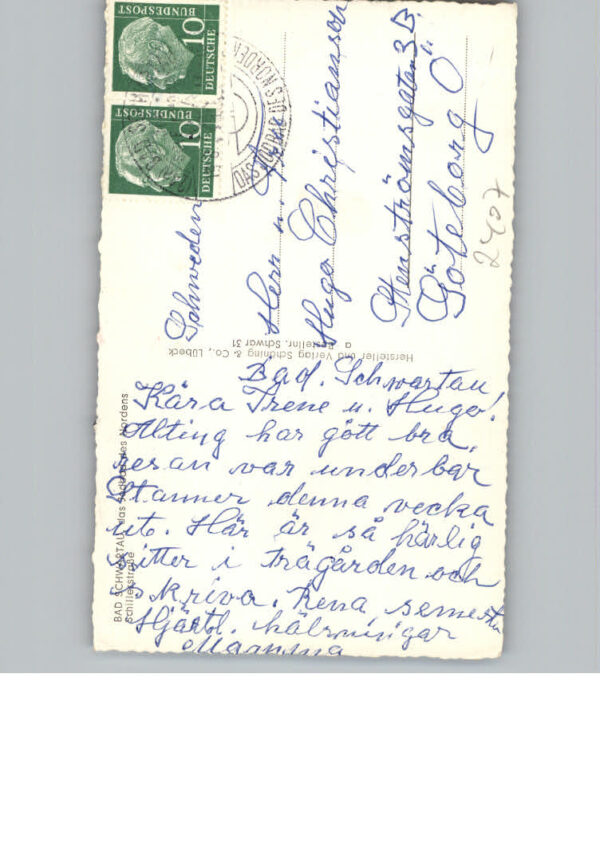 10
DEUTSCHE
BUNDESPOST
10
DEUTSCHE
BUNDESPOST
DAS JODBAD DES NORDENS
Herr u.
Hugo Christianson
Stenströmsgatan 3B
Göteborg Ö
Schweden
2407
Hersteller und Verlag Schöning & Co., Lübeck
Bestellnr. Schwar 31
BAD SCHWARTAU, das Jodbad des Nordens
Schillerstraße
Bad. Schwartau
Kära Irene u. Hugo!
Allting har gott bra,
resan var underbar
Stanner denna vecka
ut. Här är så härlig
sitter i trägården och
skriva. Rena semestern
Hjärtl. hälsningar
Mamma